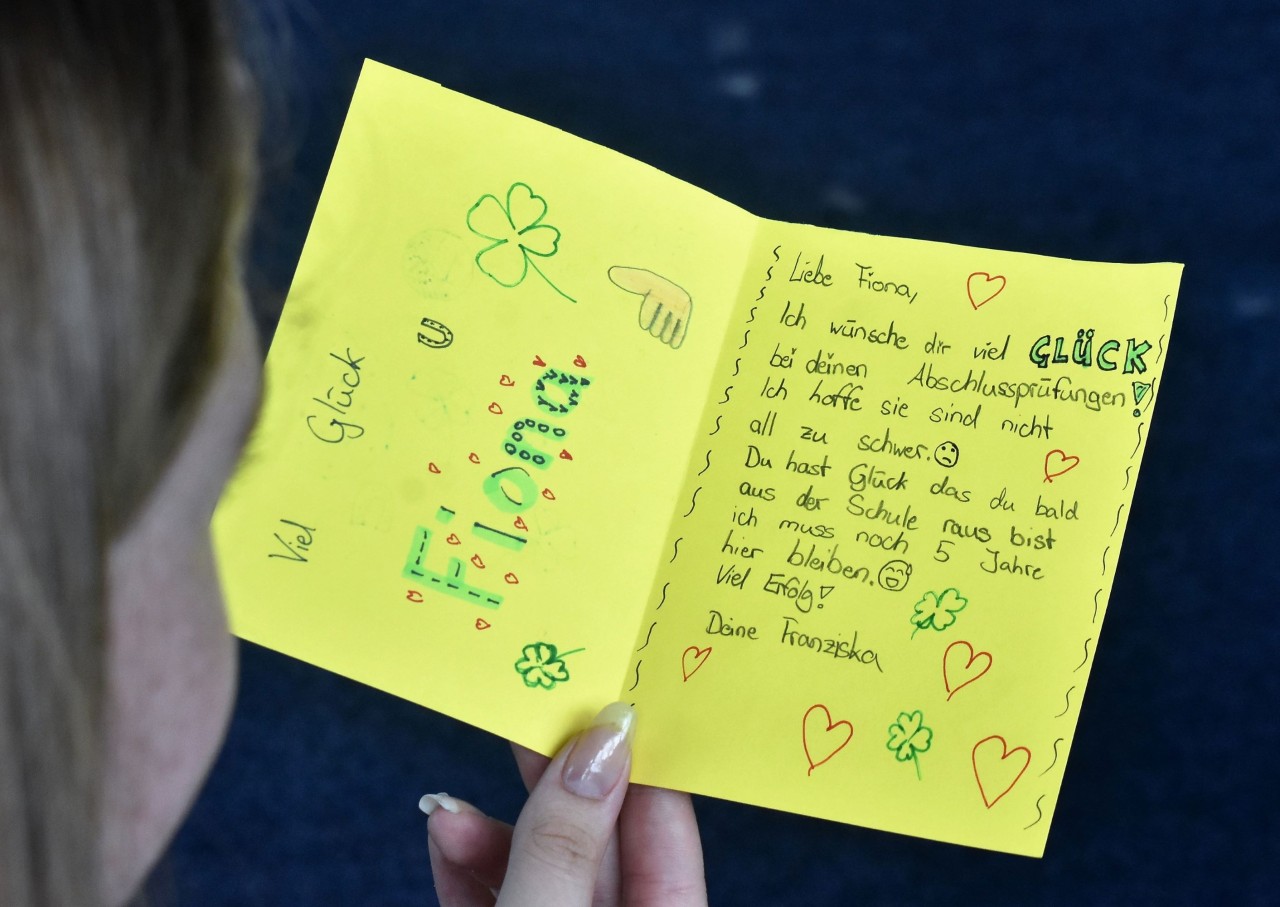 Viel Glück
Fiona
Liebe Fiona,
Ich wünsche dir viel GLÜCK
bei deinen Abschlussprüfungen!
Ich hoffe sie sind nicht
all zu schwer.
Du hast Glück das du bald
aus der Schule raus bist
ich muss noch 5 Jahre
hier bleiben.
Viel Erfolg!
Deine Franziska